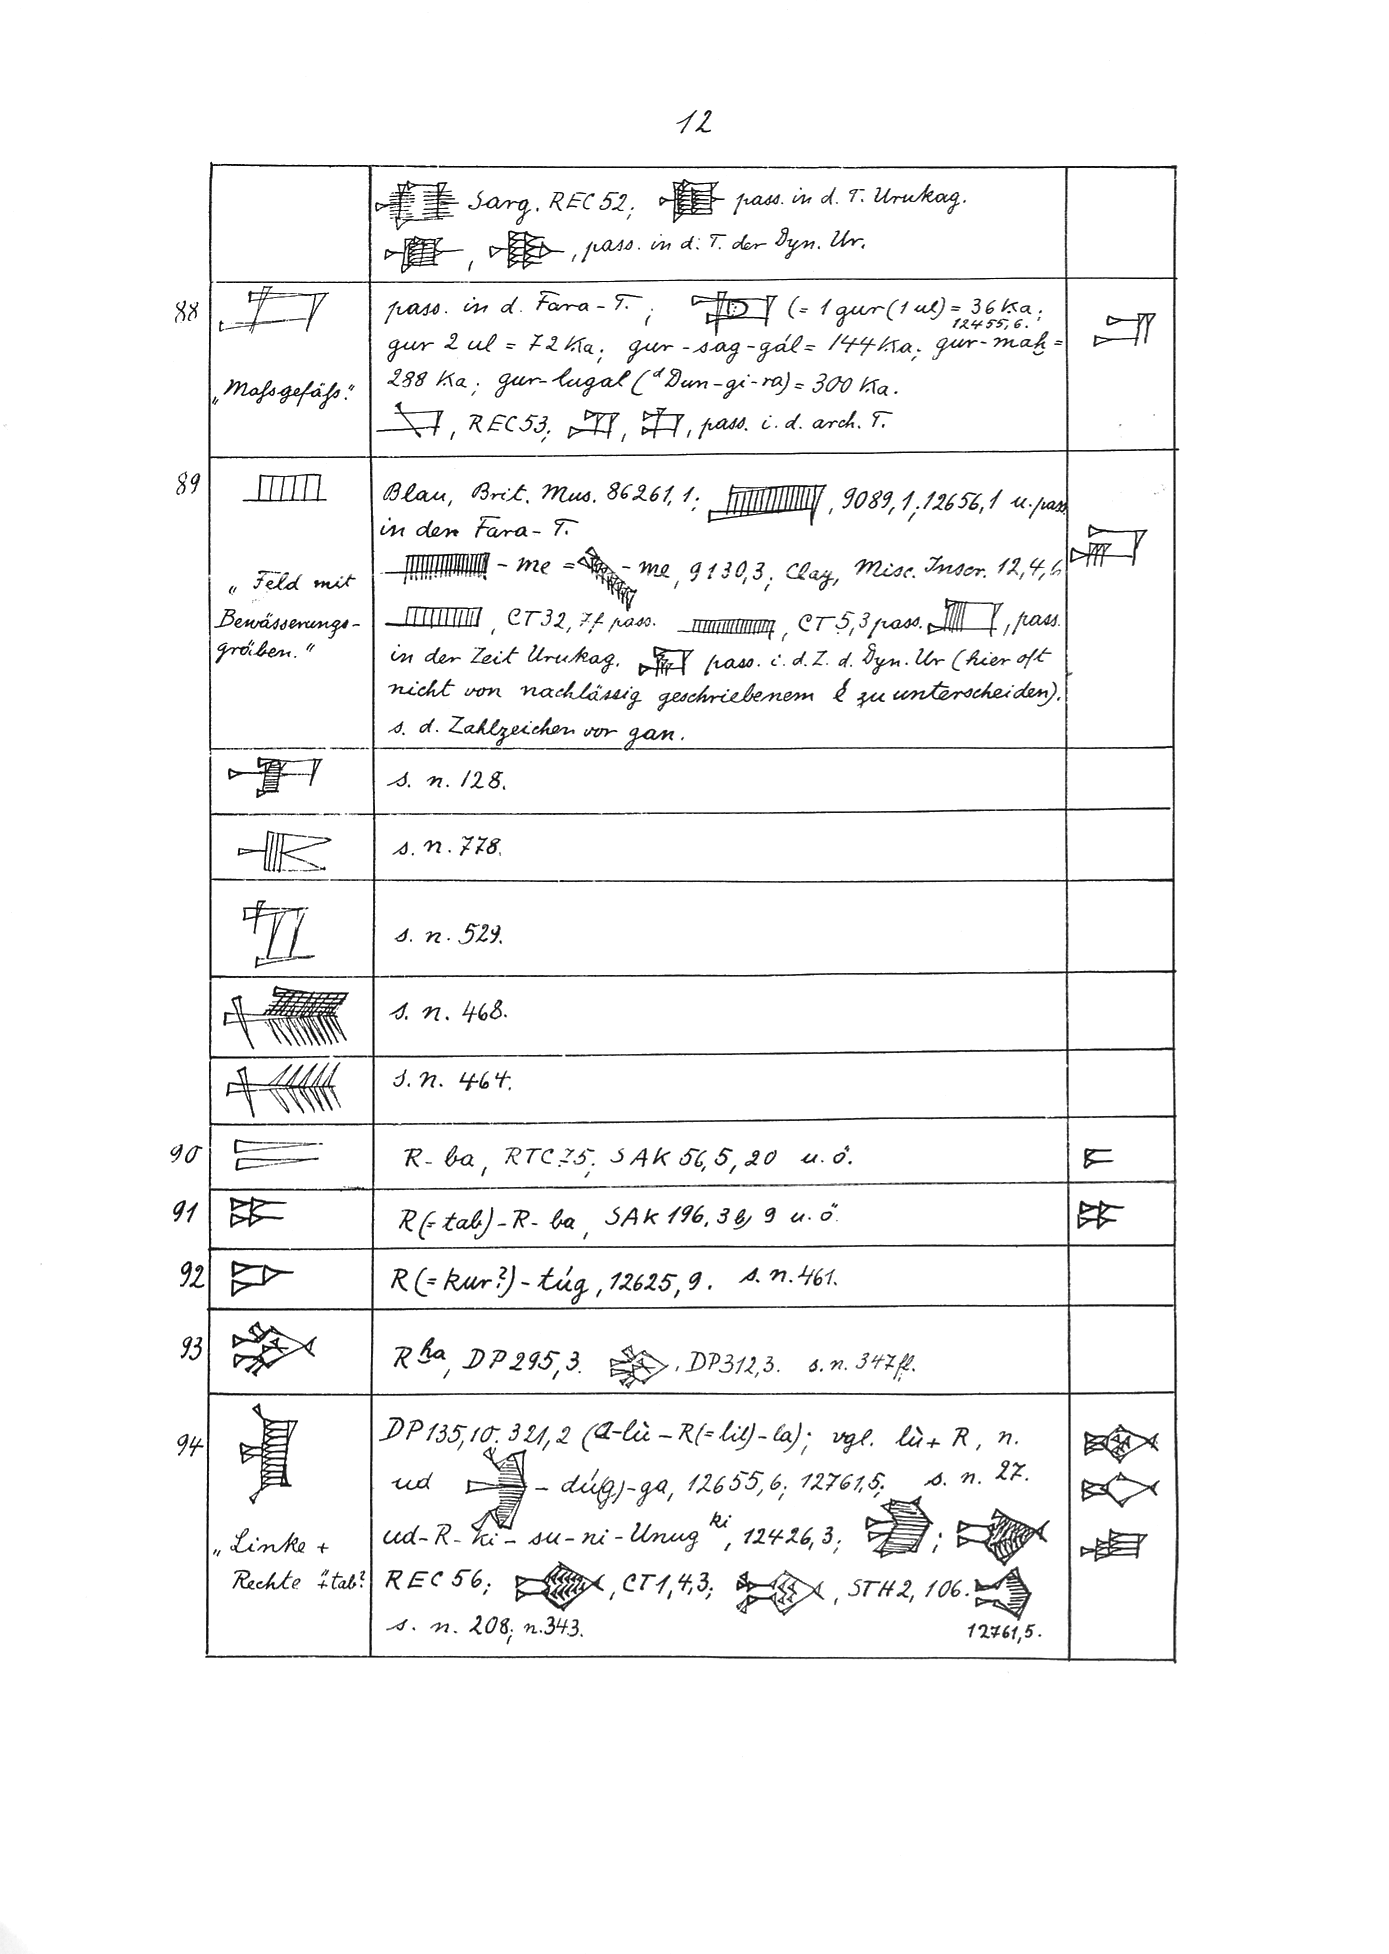 12
Sarg. REC 52; pass. in d. T. Urukag.
, , pass. in d. T. der Dyn. Ur.
88
pass. in d. Fara-T.; (= 1 gur (1 ul) = 36 Ka;
12455,6.
gur 2 ul = 72 Ka; gur-sag-gál = 144 Ka; gur-maḫ =
„Maſsgefäſs."
288 Ka; gur-lugal (ᵈDun-gi-ra) = 300 Ka.
, REC 53; , , pass. i. d. arch. T.
89
Blau, Brit. Mus. 86261,1; , 9089,1; 12656,1 u. pass.
in den Fara-T.
-me = -me, 9130,3; Clay, Misc. Inscr. 12,4,
„Feld mit
Bewässerungs-
gräben."
, CT 32, 7f pass. , CT 5,3 pass. , pass.
in der Zeit Urukag. pass. i. d. Z. d. Dyn. Ur (hier oft
nicht von nachlässig geschriebenem é zu unterscheiden).
s. d. Zahlzeichen vor gan.
s. n. 128.
s. n. 778.
s. n. 529.
s. n. 468.
s. n. 464.
90 R-ba, RTC 75; SAK 56,5,20 u. ö.
91 R (= tab)-R-ba, SAK 196,3b,9 u. ö.
92 R (= kur?)-túg, 12625,9. s. n. 461.
93 R ḫa, DP 295,3. . DP 312,3. s. n. 347ff.
94
DP 135,10. 321,2 (a-lù-R(=lil)-la); vgl. lù + R, n.
ud -dú(g)-ga, 12655,6; 12761,5; s. n. 27.
„Linke +
Rechte "+tab?
ud-R-ki-su-ni-Unug ki, 12426,3; ;
REC 56; , CT 1,4,3; , STH 2, 106.
s. n. 208; n. 343.
12761,5.